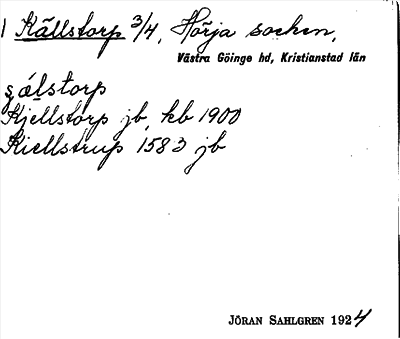 1 Källstorp 3/4, Hörja socken,
Västra Göinge hd, Kristianstad län
şälstorp
Kjellstorp jb, kb 1900
Kiellstrup 1583 jb
JÖRAN SAHLGREN 1924